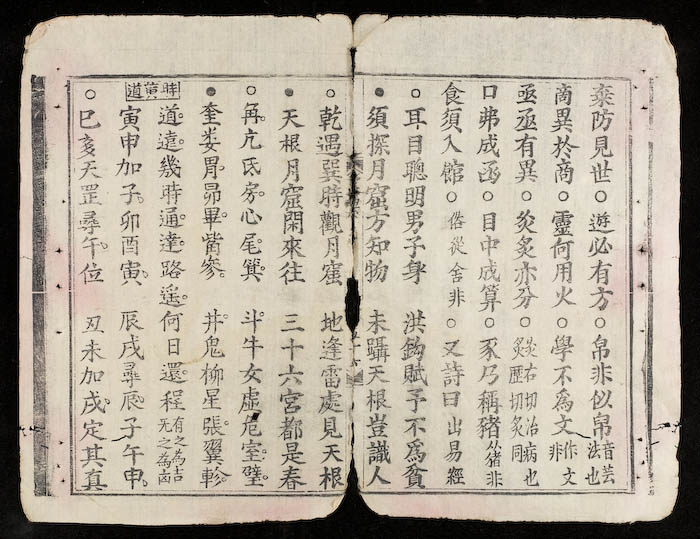 防見世○遊必有方○帛非似帠音芸法也
啇異於商○靈何用火○學不為文作文非
亟丞有異○灸炙亦分○右切治病也歷切炙同
口弗成函○目中成算○豕乃稱豬从猪非
食須入館○俗從舍非○又詩曰出易經
○耳目聰明男子身 洪鈞賦予不為貧
●須探月窟方知物 未躡天根豈識人
○乾遇巽時觀月窟 地逢雷處見天根
●天根月窟閑來往 三十六宮都是春
○角亢氐房心尾箕 斗牛女虛危室壁
●奎婁胃昴畢觜參 井鬼柳星張翼軫
時黃道
道遠幾時通達路遙何日還程有之為吉无之為凶
寅申加子卯酉寅 辰戌尋辰子午申
○巳亥天罡尋午位 丑未加戌定其真